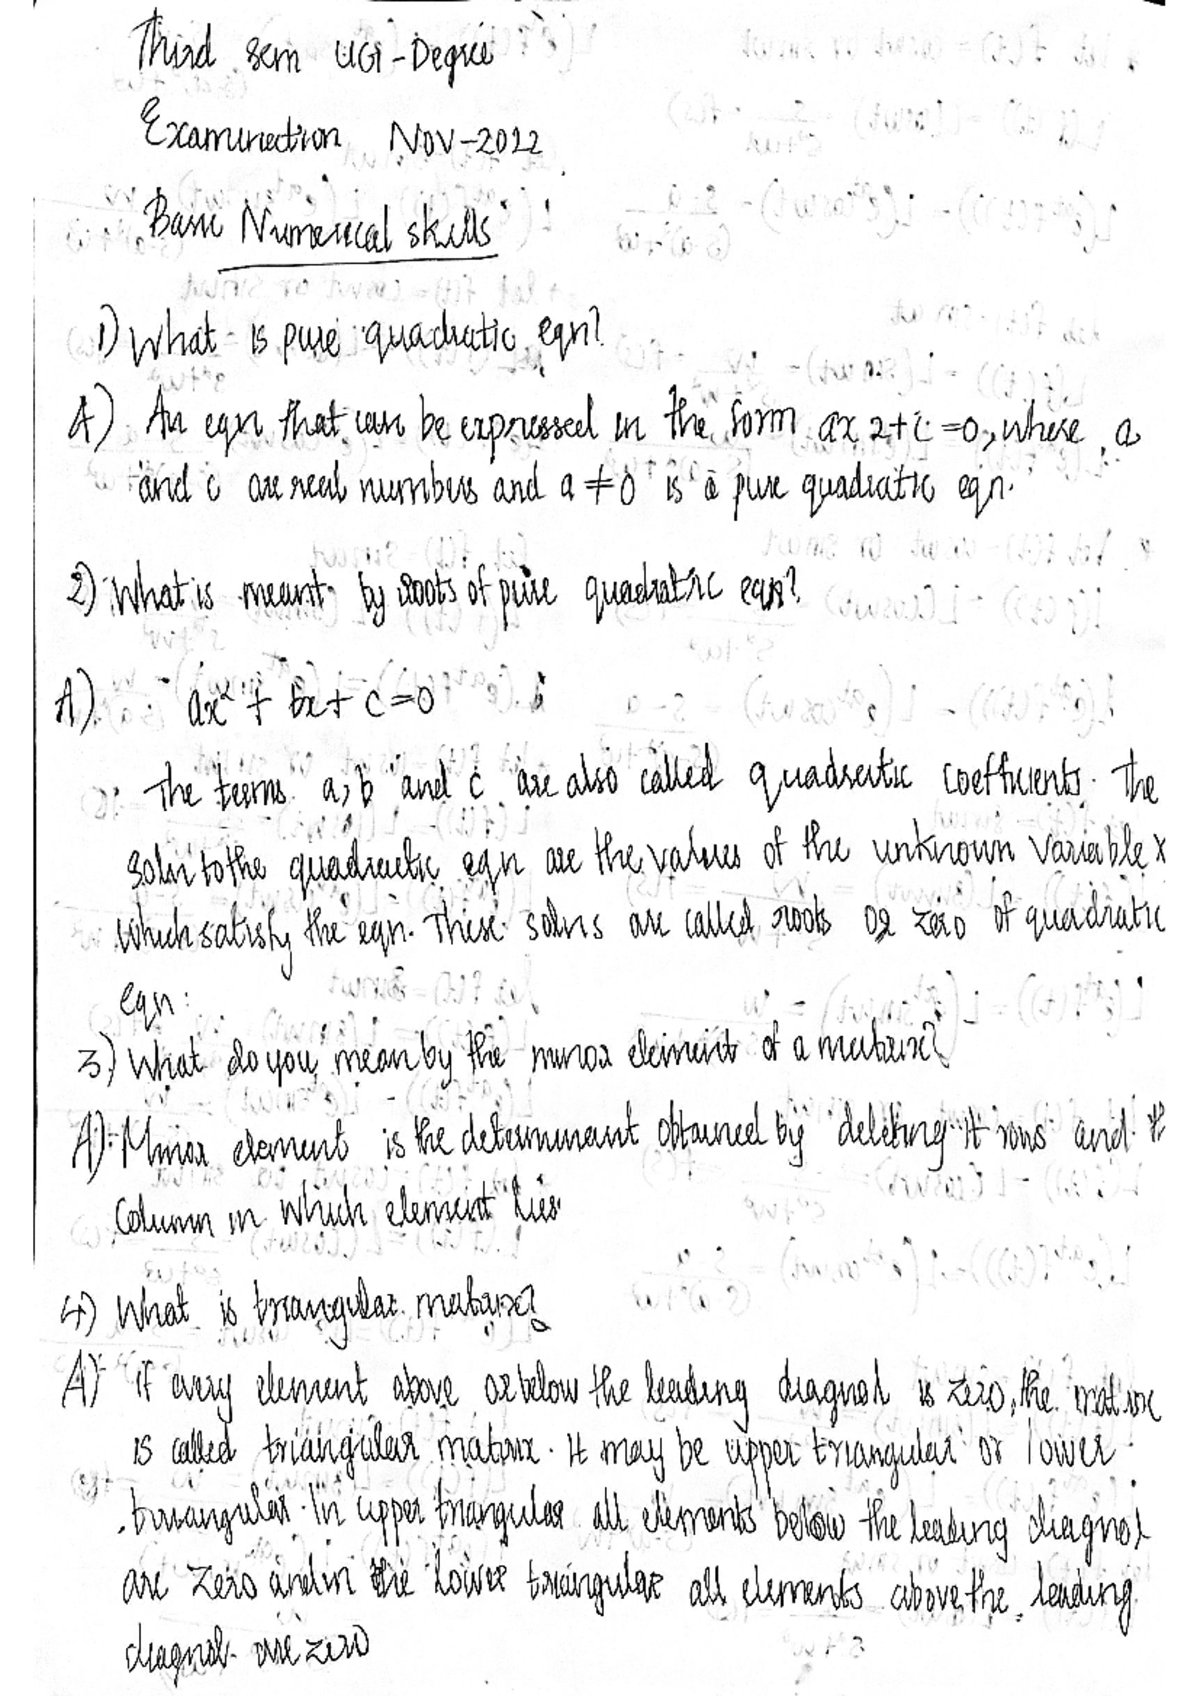 Third sem UG-Degree
Examination Nov-2022
Basic Numerical skills
1) What is pure quadratic eqn?
A) An eqn that can be expressed in the form ax2+c=0, where a
and c are real numbers and a ≠ 0 is a pure quadratic eqn.
2) What is meant by roots of pure quadratic eqn?
A) ax² + bx + c = 0
The terms a, b and c are also called quadratic coefficients. The
soln to the quadratic eqn are the values of the unknown variable x
which satisfy the eqn. These solns are called roots or zero of quadratic
eqn.
3) What do you mean by the minor element of a matrix?
A) Minor element is the determinant obtained by deleting it rows and it
column in which element lies.
4) What is triangular matrix?
A) if every element above or below the leading diagnol is zero, the matrix
is called triangular matrix. It may be upper triangular or lower
triangular. In upper triangular all elements below the leading diagnol
are zero and in the lower triangular all elements above the leading
diagnol are zero